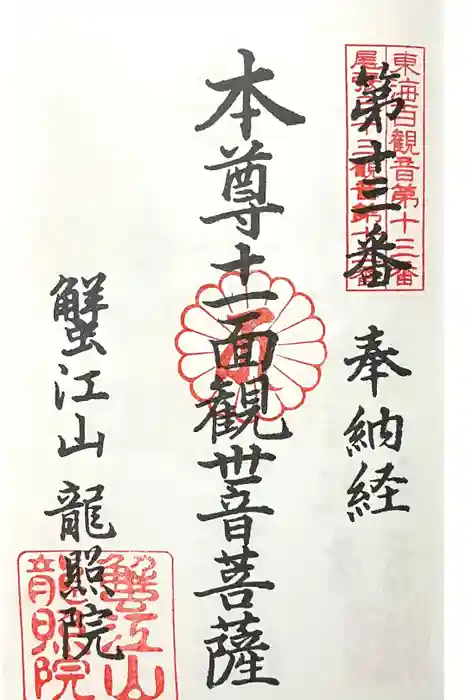 東海百観音第十三番
尾張三十三観世第十三番
第十三番
奉納経
本尊十一面観世音菩薩
蟹江山龍照院
蟹江山
龍照院